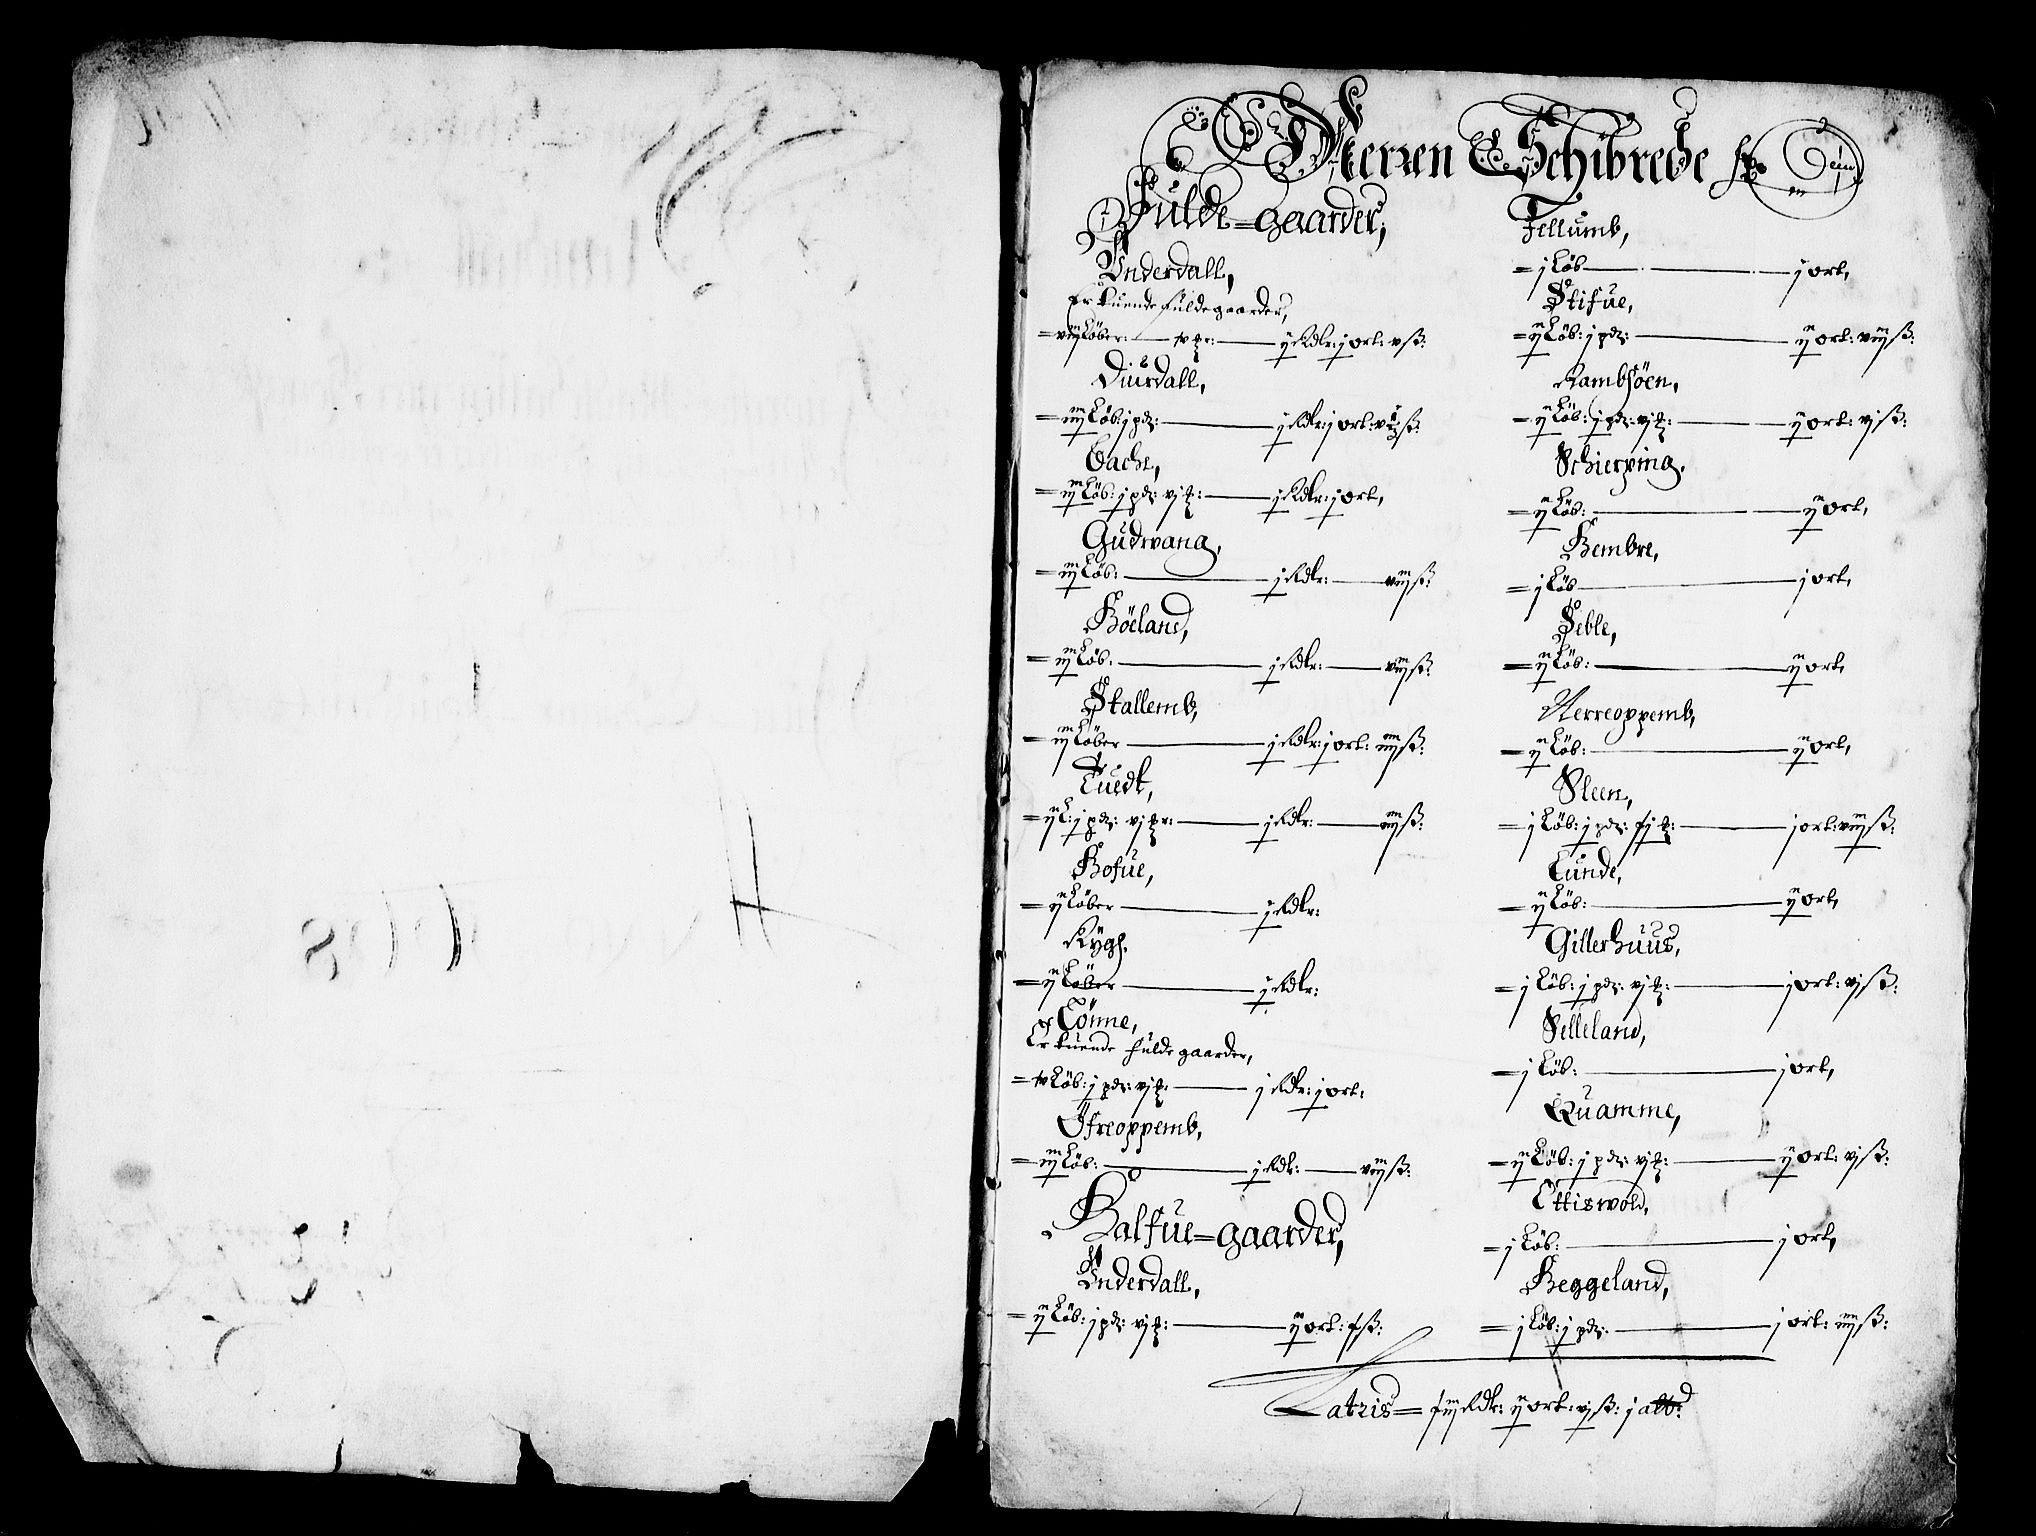 Nerren Schibrede
Fulde=gaarder,
Underdall,
Er tuende fulde gaarder,
=viij Löber: — ij Rdr: j ort: v ß:
Diurdall,
=iij Löb: j pd: — j Rdr: j ort:
Bache,
=iij Löb: j pd: vj — j Rdr: j ort,
Gudwang,
=iij Löb: — j Rdr: — viij ß:
Höeland,
=iij Löb: — j Rdr: — viij ß:
Stallemb,
=iij Löber — j Rdr: j ort: iiij ß:
Tuedt,
=ij L: j pd: vj — j Rdr: — iiij ß:
Hofue,
=ij Löber — j Rdr:
Rygh.
=ij Löber — j Rdr:
Lönne,
Er tuende fulde gaarder,
Löb: j pd: vj — j Rdr: j ort:
Öfreoppemb,
=iij Löb: — j Rdr: — viij ß:
Halfue=gaarder,
Underdall,
=ij Löb: j pd: vj — ij ort:
Fellumb,
=j Löb — j ort,
Stifue,
=ij Löb: j pd: — ij ort: viij ß:
Rambsöen,
=ij Löb: j pd: vj — ij ort: vj ß:
Schierping,
=ij Löb: — ij ort,
Hembre,
=j Löb — j ort,
Seble,
=ij Löb: — ij ort,
Nerreoppemb,
=ij Löb: — ij ort,
Steen,
=j Löb: j pd: — j ort: viij ß:
Lunde,
=ij Löb: — ij ort,
Gillerhuus,
=j Löb: j pd: vj — j ort: vj ß:
Selleland,
=j Löb: — j ort,
Quamme,
=ij Löb: j pd: vj — ij ort: vj ß:
Ottiswold,
=j Löb: — j ort,
Heggeland,
=j Löb: j pd: — j ort: iiij ß:
Latris= Rdr: ij ort: vj ß: j alb: